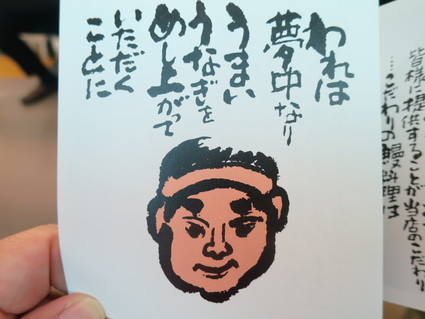 われは
夢中なり
うまい
うなぎを
めし上がって
いただく
ことに
皆様に
提供することが当店のこだわり
…こだわりの鰻料理は